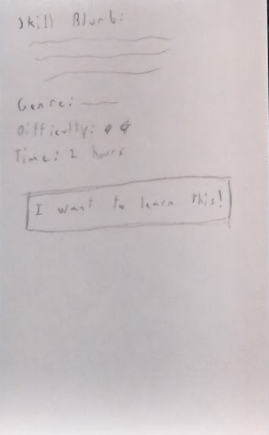 Skill Blurb:
Genre:
Difficulty:
Time: 2 hours
I want to learn this!